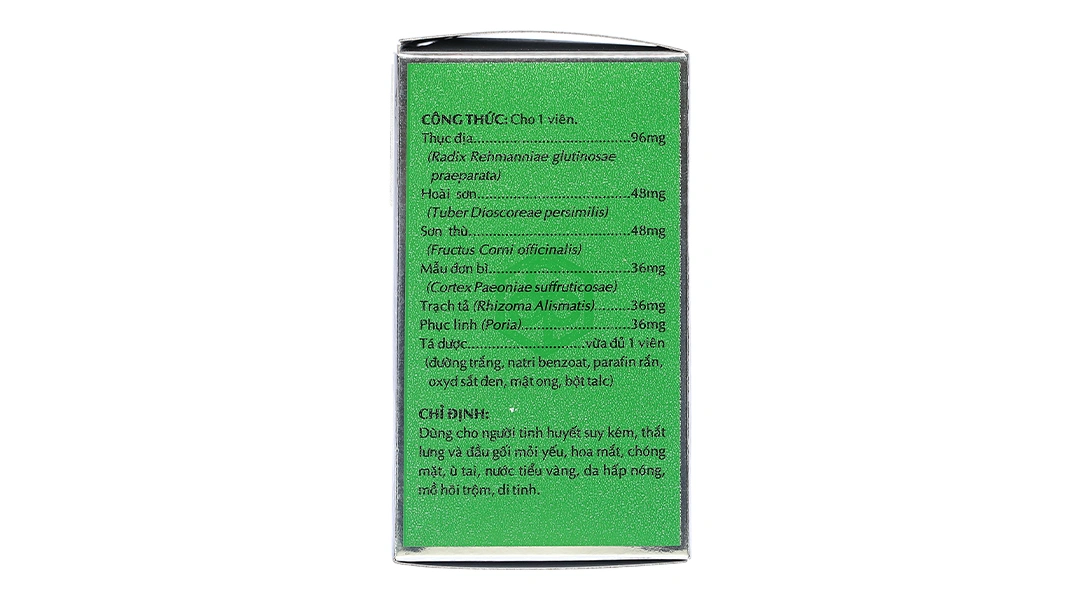 CÔNG THỨC: Cho 1 viên.
Thục địa........................................96mg
(Radix Rehmanniae glutinosae
praeparata)
Hoài sơn.......................................48mg
(Tuber Dioscoreae persimilis)
Sơn thù.........................................48mg
(Fructus Corni officinalis)
Mẫu đơn bì...................................36mg
(Cortex Paeoniae suffruticosae)
Trạch tả (Rhizoma Alismatis).........36mg
Phục linh (Poria)...........................36mg
Tá dược.............................vừa đủ 1 viên
(đường trắng, natri benzoat, parafin rắn,
oxyd sắt đen, mật ong, bột talc)
CHỈ ĐỊNH:
Dùng cho người tinh huyết suy kém, thắt
lưng và đầu gối mỏi yếu, hoa mắt, chóng
mặt, ù tai, nước tiểu vàng, da hấp nóng,
mồ hôi trộm, di tinh.